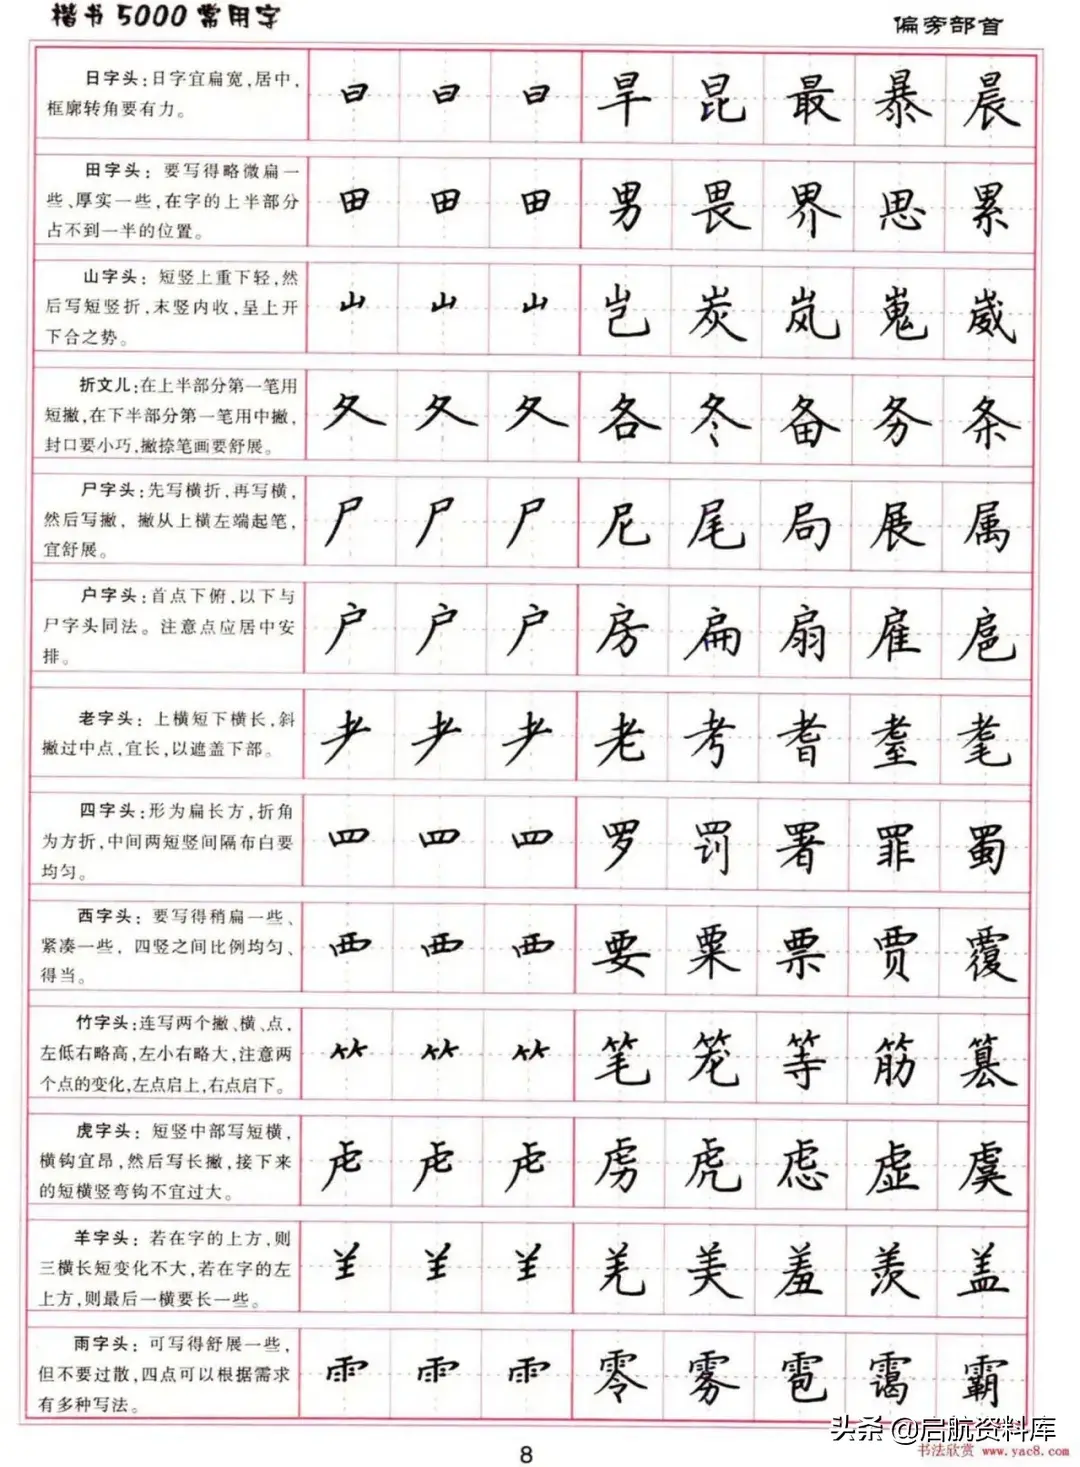 楷书5000常用字
偏旁部首
日字头:日字宜扁宽,居中,
框廓转角要有力。
日 日 日 旱 昆 最 暴 晨
田字头:要写得略微扁一
些、厚实一些,在字的上半部分
占不到一半的位置。
田 田 田 男 畏 界 思 累
山字头:短竖上重下轻,然
后写短竖折,末竖内收,呈上开
下合之势。
山 山 山 岂 炭 岚 嵬 崴
折文儿:在上半部分第一笔用
短撇,在下半部分第一笔用中撇,
封口要小巧,撇捺笔画要舒展。
夂 夂 夂 各 冬 备 务 条
尸字头:先写横折,再写横,
然后写撇,撇从上横左端起笔,
宜舒展。
尸 尸 尸 尼 尾 局 展 属
户字头:首点下俯,以下与
尸字头同法。注意点应居中安
排。
户 户 户 房 扁 扇 雇 扈
老字头:上横短下横长,斜
撇过中点,宜长,以遮盖下部。
耂 耂 耂 老 考 耆 耋 耄
四字头:形为扁长方,折角
为方折,中间两短竖间隔布白要
均匀。
罒 罒 罒 罗 罚 署 罪 蜀
西字头:要写得稍扁一些、
紧凑一些,四竖之间比例均匀、
得当。
覀 覀 覀 要 粟 票 贾 覆
竹字头:连写两个撇、横、点,
左低右略高,左小右略大,注意两
个点的变化,左点启上,右点启下。
⺮ ⺮ ⺮ 笔 笼 等 筋 篡
虎字头:短竖中部写短横,
横钩宜昂,然后写长撇,接下来
的短横竖弯钩不宜过大。
虍 虍 虍 虏 虎 虑 虚 虞
羊字头:若在字的上方,则
三横长短变化不大,若在字的左
上方,则最后一横要长一些。
𦍌 𦍌 𦍌 羌 美 羞 羡 盖
雨字头:可写得舒展一些,
但不要过散,四点可以根据需求
有多种写法。
⻗ ⻗ ⻗ 零 雾 雹 霭 霸
头条 @启航资料库
书法欣赏 www.yac8.com
8